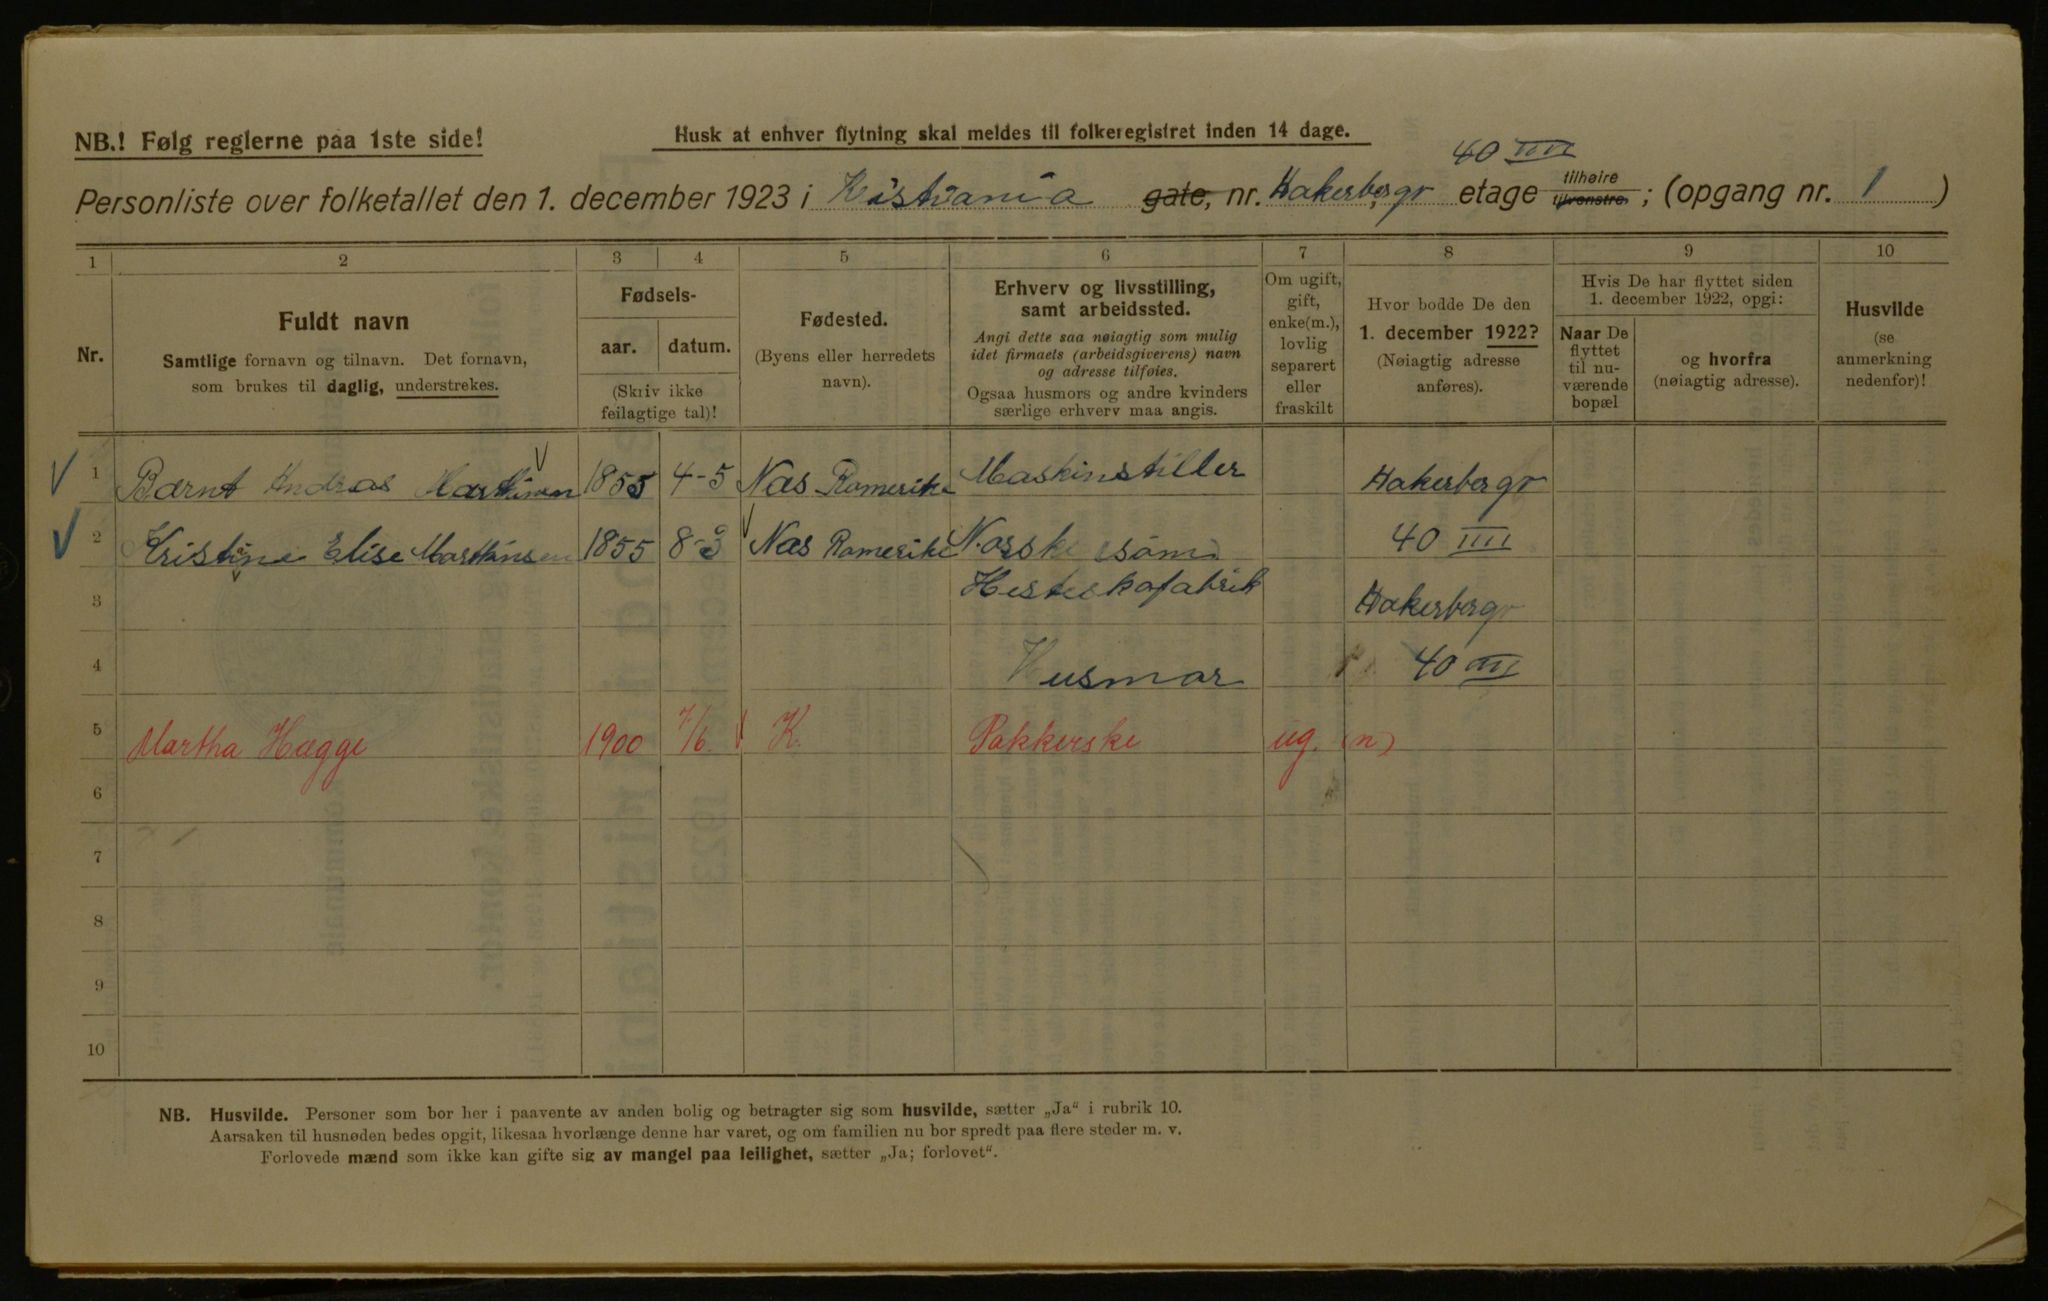 NB.! Følg reglerne paa 1ste side!
Husk at enhver flytning skal meldes til folkeregistret inden 14 dage.
40 IIII
Personliste over folketallet den 1. december 1923 i Kistiania gate, nr. Hakerbergv etage tilhøire tilvenstre ; (opgang nr. 1 )
1 2 3 4 5 6 7 8 9 10
Nr.
Fuldt navn
Samtlige fornavn og tilnavn. Det fornavn, som brukes til daglig, understrekes.
Fødsels-
aar. datum.
(Skriv ikke feilagtige tal)!
Fødested.
(Byens eller herredets navn).
Erhverv og livsstilling, samt arbeidssted.
Angi dette saa nøiagtig som mulig idet firmaets (arbeidsgiverens) navn og adresse tilføies.
Ogsaa husmors og andre kvinders særlige erhverv maa angis.
Om ugift, gift, enke(m.), lovlig separert eller fraskilt
Hvor bodde De den 1. december 1922?
(Nøiagtig adresse anføres).
Hvis De har flyttet siden 1. december 1922, opgi:
Naar De flyttet til nuværende bopæl
og hvorfra (nøiagtig adresse).
Husvilde
(se anmerkning nedenfor)!
1 Bærnt Andras Marthinsen 1855 4-5 Næs Romerike Maskinstiller Hakerbergv
2 Kristine Elise Marthinsen 1855 8-3 Næs Romerike Norske søm 40 IIII
3 Hesteskofabrik Hakerbergv
4 Husmor 40 IIII
5 Martha Hægge 1900 7/6. K. Pakkerske ug. (n)
6
7
8
9
10
NB. Husvilde. Personer som bor her i paavente av anden bolig og betragter sig som husvilde, sætter „Ja“ i rubrik 10.
Aarsaken til husnøden bedes opgit, likesaa hvorlænge denne har varet, og om familien nu bor spredt paa flere steder m. v.
Forlovede mænd som ikke kan gifte sig av mangel paa leilighet, sætter „Ja; forlovet“.